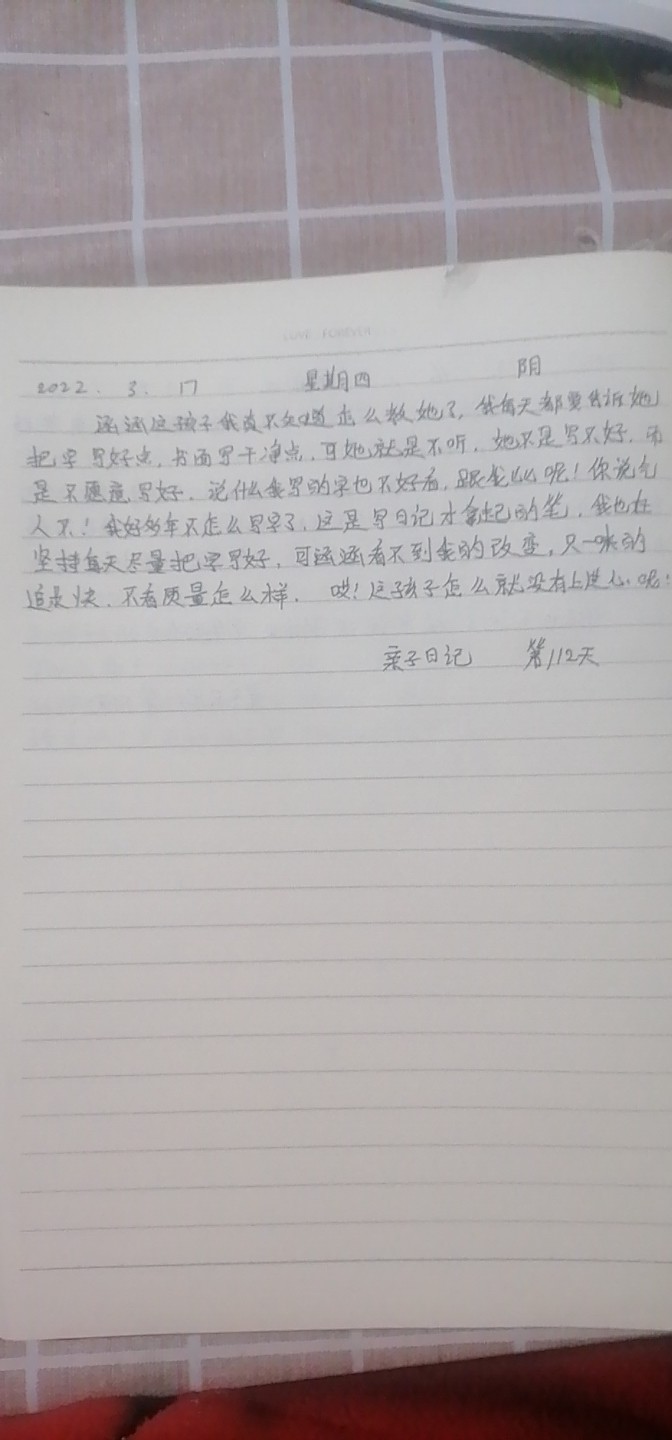 LOVE FOREVER
2022. 3. 17 星期四 阴
涵涵这孩子我真不知道怎么教她了, 我每天都要告诉她
把字写好点, 书面写干净点, 可她就是不听, 她不是写不好, 而
是不愿意写好, 说什么我写的字也不好看, 跟我么呢! 你说气
人不! 我好多年不怎么写字了, 这是写日记才拿起的笔, 我也在
坚持每天尽量把字写好, 可涵涵看不到我的改变, 只一味的
追求快, 不看质量怎么样. 哎! 这孩子怎么就没有上进心呢!
亲子日记 第112天